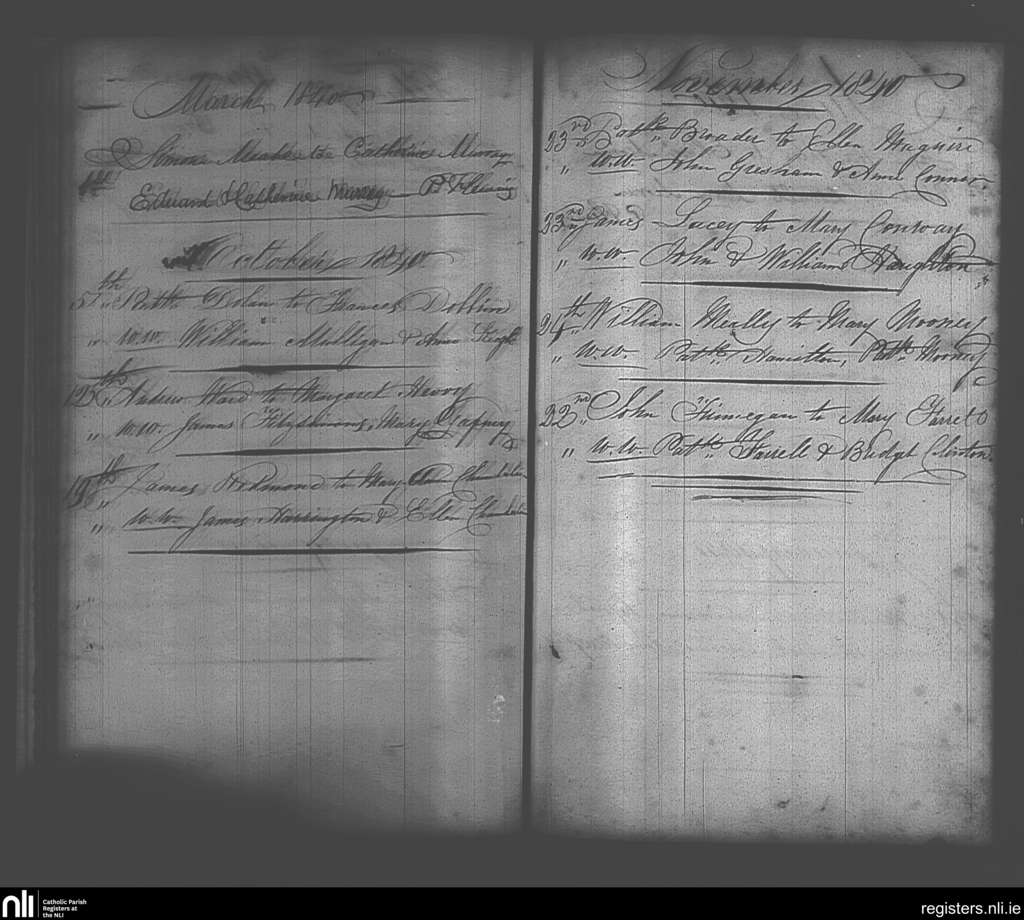 March 1840
1st Simon Meake to Catherine Murray
Edward & Catherine Murray P Fleming
October 1840
5th Pattk Dolan to Frances Dobbin
" W.W. William Mulligan & Anne
12th Andrew Ward to Margaret Hevoy
" W.W. James Fitzsimons, Mary Gaffney
19th James Redmond to Mary Ann Chamberlin
" W.W. James Harrington & Ellen Chamberlin
November 1840
23rd Patk Broader to Ellen Maguire
" W.W. John Gresham & Anne Connor
23rd James Lacey to Mary Conway
" W.W. John & William Haughton
24th William Mealley to Mary Mooney
" W.W. Patk Hamilton, Patk Mooney
22nd John Finnegan to Mary Farrell
" W.W. Patk Farrell & Bridget Clinton
nli
Catholic Parish
Registers at
the NLI
registers.nli.ie